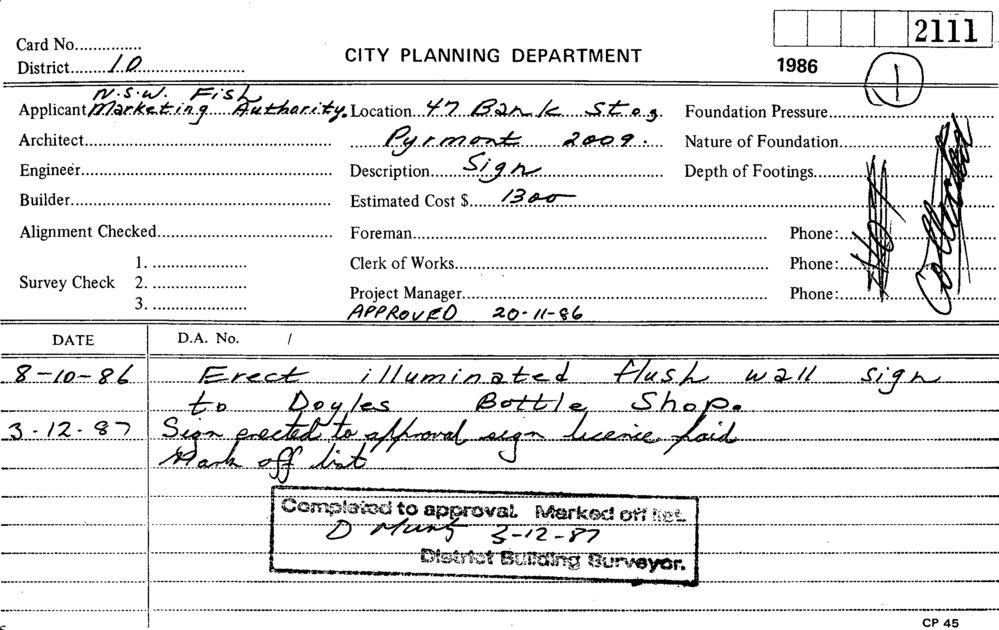 2111
Card No...............
CITY PLANNING DEPARTMENT
District.........10........................
1986
1
N.S.W. Fish
Applicant Marketing Authority. Location...47 Bank St
Foundation Pressure
Architect
Pyrmont 2009.
Nature of Foundation
Engineer
Description......Sign
Depth of Footings
Builder
Estimated Cost $......1300
Alignment Checked
Foreman
Phone:
Not
Collected
1.
Clerk of Works
Phone:
Survey Check 2.
3.
Project Manager
Phone:
APPROVED 20-11-86
DATE
D.A. No. /
8-10-86 Erect illuminated flush wall sign
to Doyles Bottle Shop.
3-12-87 Sign erected to approval sign licence paid
Mark off list
Completed to approval. Marked off list.
3-12-87
District Building Surveyor.
CP 45